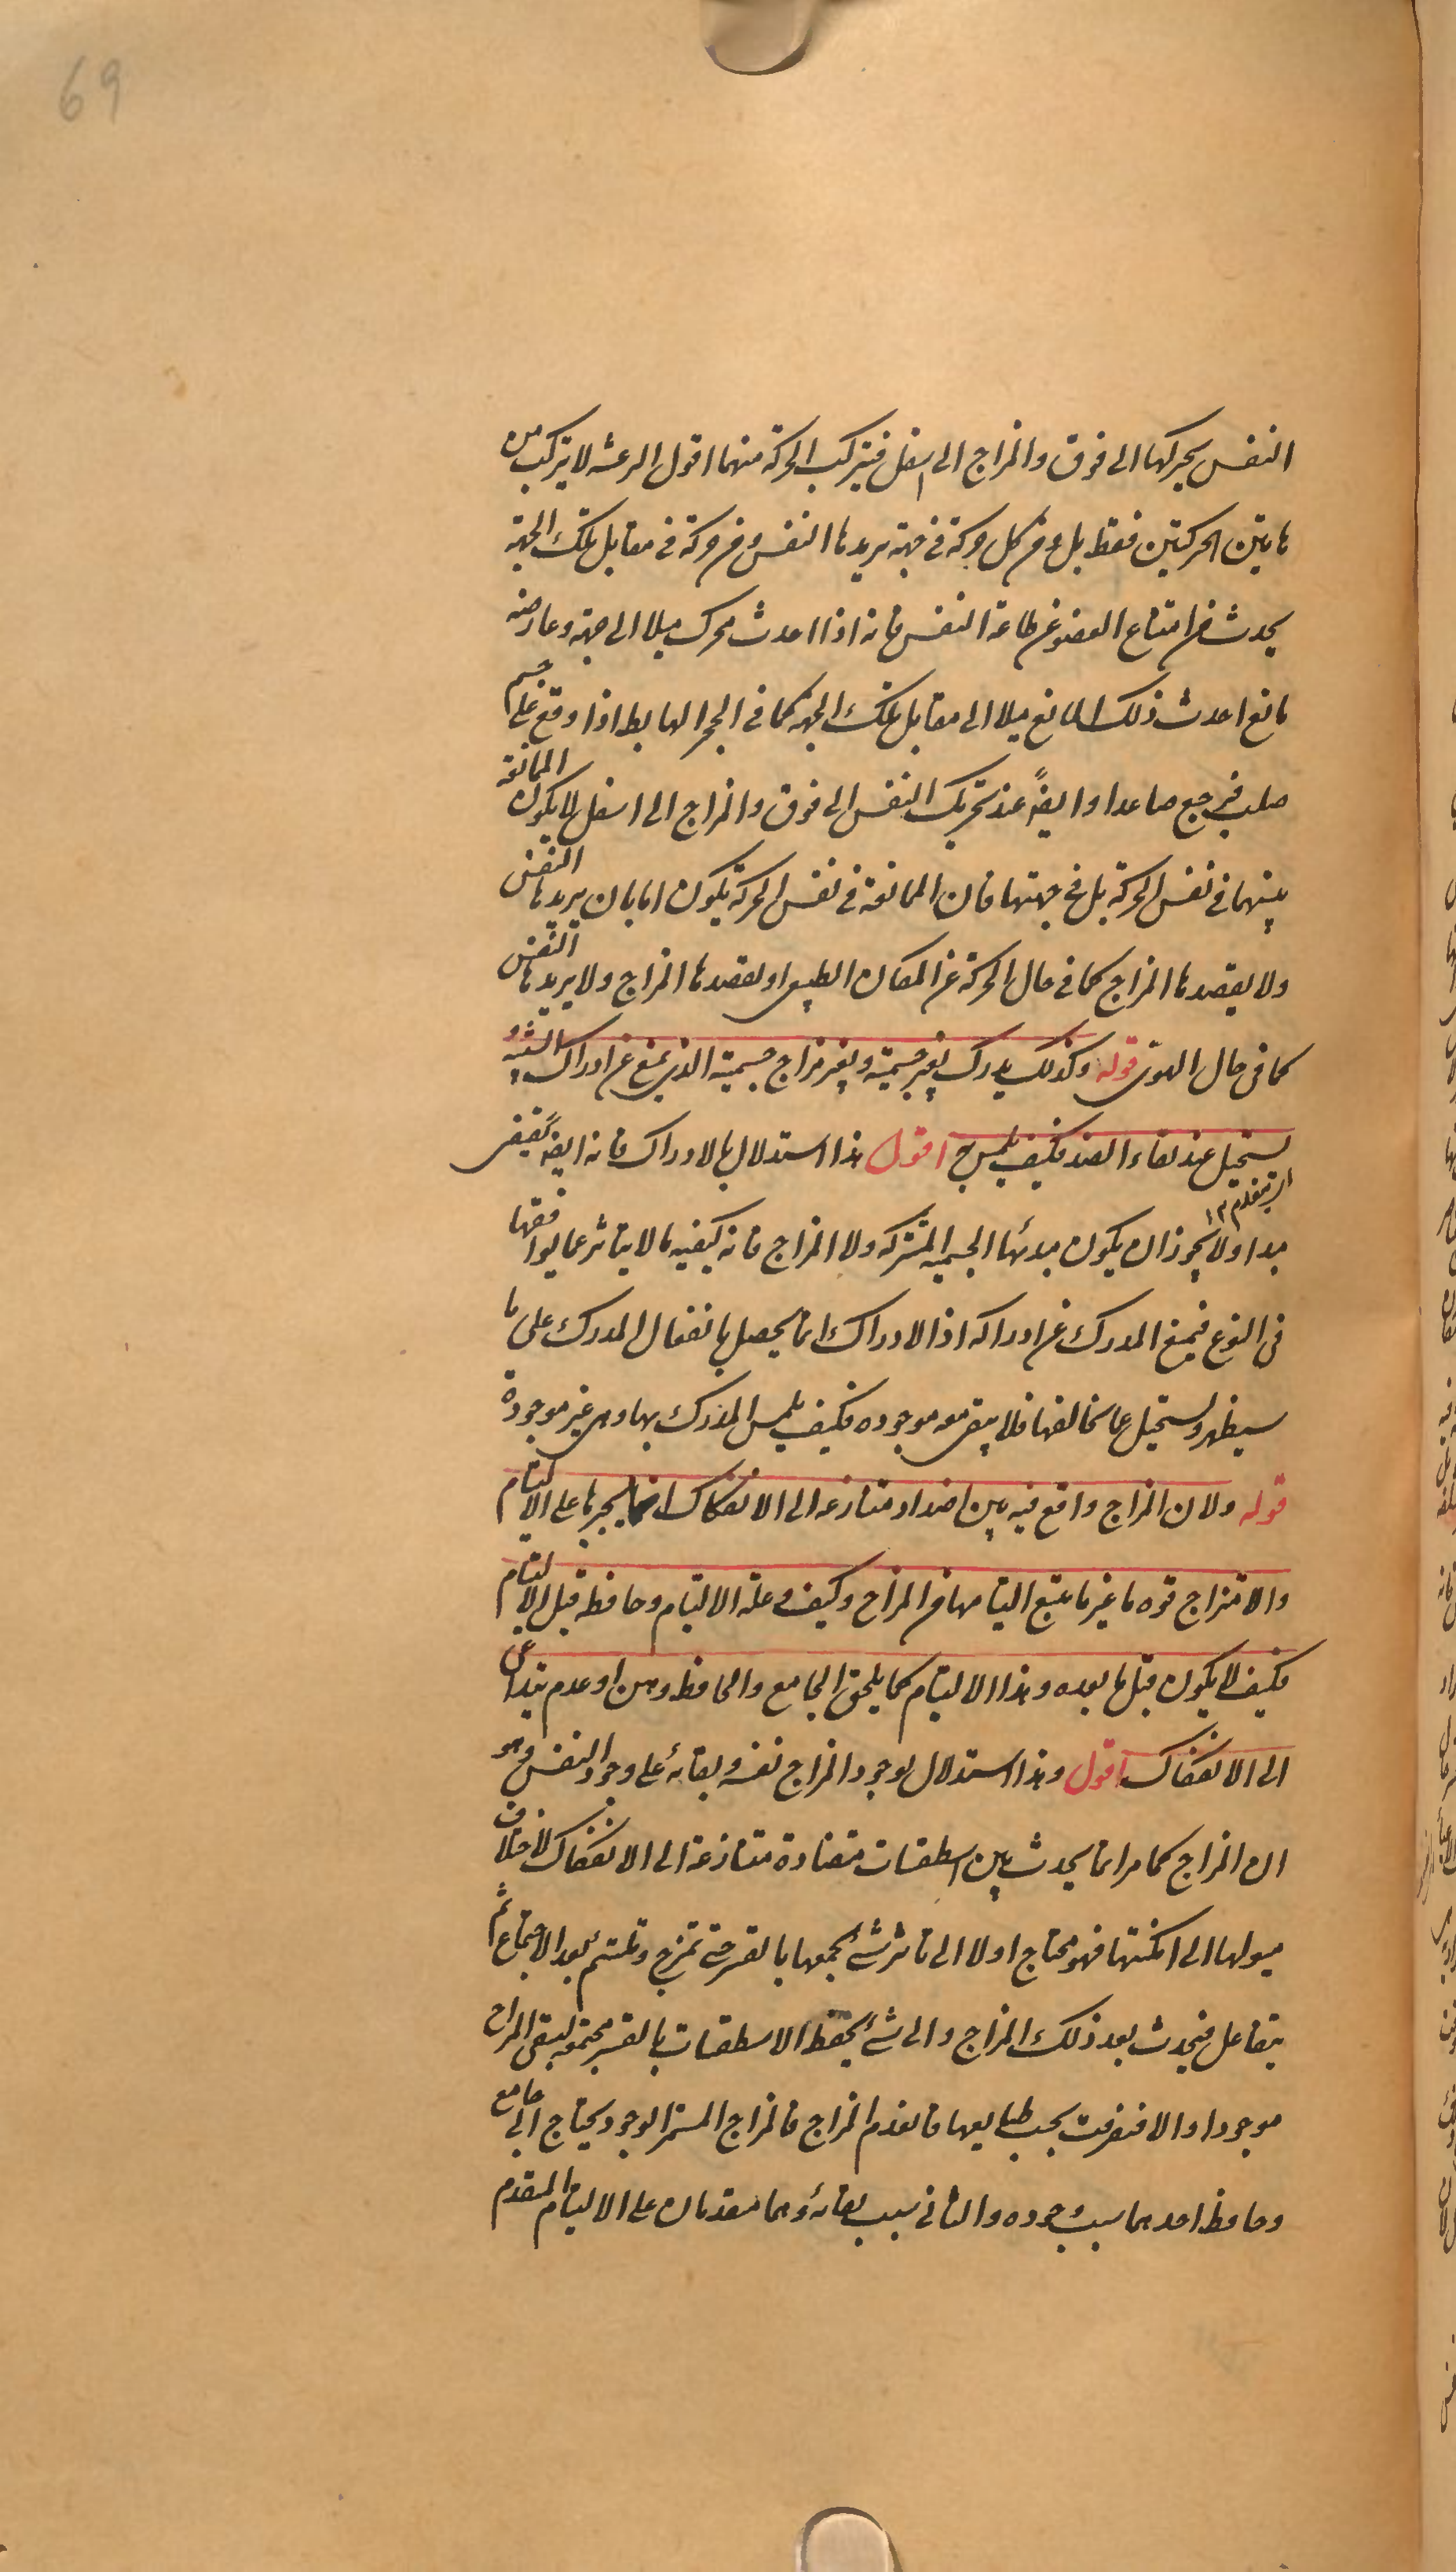 69
النفس يحركها الى فوق والمزاج الى اسفل فيتركب الحركة منهما اقول الرعشه لا يتركب من
هاتين الحركتين فقط بل و من كل حركة فى جهة يريدها النفس و من حركة فى مقابل تلك الجهة
يحدث من امتناع العضو عن طاعة النفس فانه اذا احدث محرك ميلا الى جهة وعارضه
مانع احدث ذلك المانع ميلا الى مقابل تلك الجهة كما فى الحجر الهابط اذا وقع على جسم
صلب فيرجع صاعدا وايضًا عند تحريك النفس الى فوق والمزاج الى اسفل لا يكون الممانعة
بينهما فى نفس الحركة بل فى جهتها فان الممانعة فى نفس الحركة يكون اما بان يريدها النفس
ولا يقصدها المزاج كما فى حال الحركة عن المكان الطبيعى او يقصدها المزاج ولا يريدها النفس
كما فى حال الهوى قوله وكذلك يدرك بغير جسمية وبغير مزاج جسمية الذى يمنع عن ادراك الشبيه و
يستحيل عند لقاء الضد فكيف يلمس به اقول هذا استدلال بالادراك فانه ايضًا يقتضى
مبدا ولا يجوز ان يكون مبدئها الجسمية المشتركه ولا المزاج فانه كيفية ما لا يتاثر عما يوافقها
فى النوع فيمنع المدرك عن ادراكه اذ الادراك انما يحصل بانفعال المدرك على ما
سيظهر ويستحيل عما يخالفها فلا يبقى معه موجوده فكيف يلمس المدرك بها وهى غير موجودة
قوله ولان المزاج واقع فيه بين اضداد متنازعه الى الانفكاك انما يجبرها على الالتيام
والامتزاج قوه ما غير ما يتبع التيامها من المزاج وكيف و علة الالتيام وحافظه قبل الالتيام
فكيف لا يكون قبل ما بعده وهذا الالتيام كما يلحق الجامع والحافظ وهن او عدم يتداعى
الى الانفكاك اقول وهذا استدلال بوجود المزاج نفسه وبقائه على وجود النفس وهو
ان المزاج كما مر انما يحدث بين اسطقسات متضادة متنازعة الى الانفكاك لاختلاف
ميولها الى امكنتها فهو محتاج اولا الى تاثر شئ يجمعها بالقسر حتى تمتزج وتلتئم بعد الاجتماع ثم
يتفاعل فيحدث بعد ذلك المزاج والى شئ يحفظ الاسطقسات بالقسر مجتمعه ليبقى المزاج
موجودا والا فتفرقت بحسب طبايعها فانعدم المزاج فالمزاج المستمر الوجود يحتاج الى جامع
وحافظ احدهما سبب وجوده والثانى سبب بقائه وهما متقدمان على الالتيام المتقدم